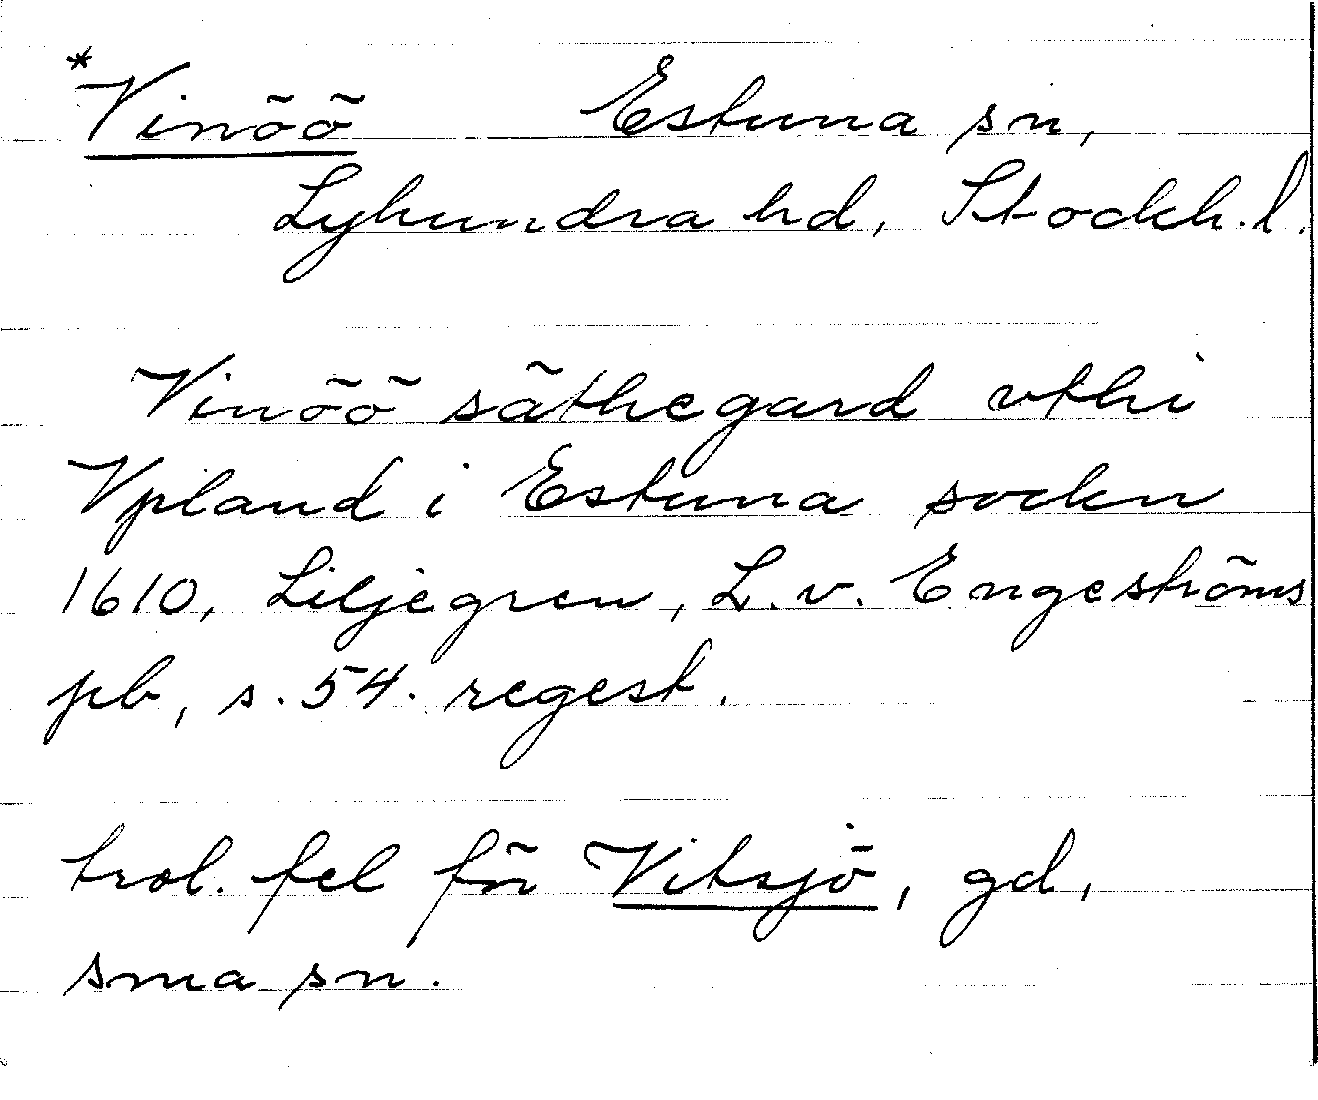 *Vinöö Estuna sn,
Lyhundra hd, Stockh.l.
Vinöö säthegard vthi
Vpland i Estuna sockn
1610, Liljegren, L.v. Engeströms
pb, s.54. regest.
trol. fel för Vitsjö, gd,
sma sn.